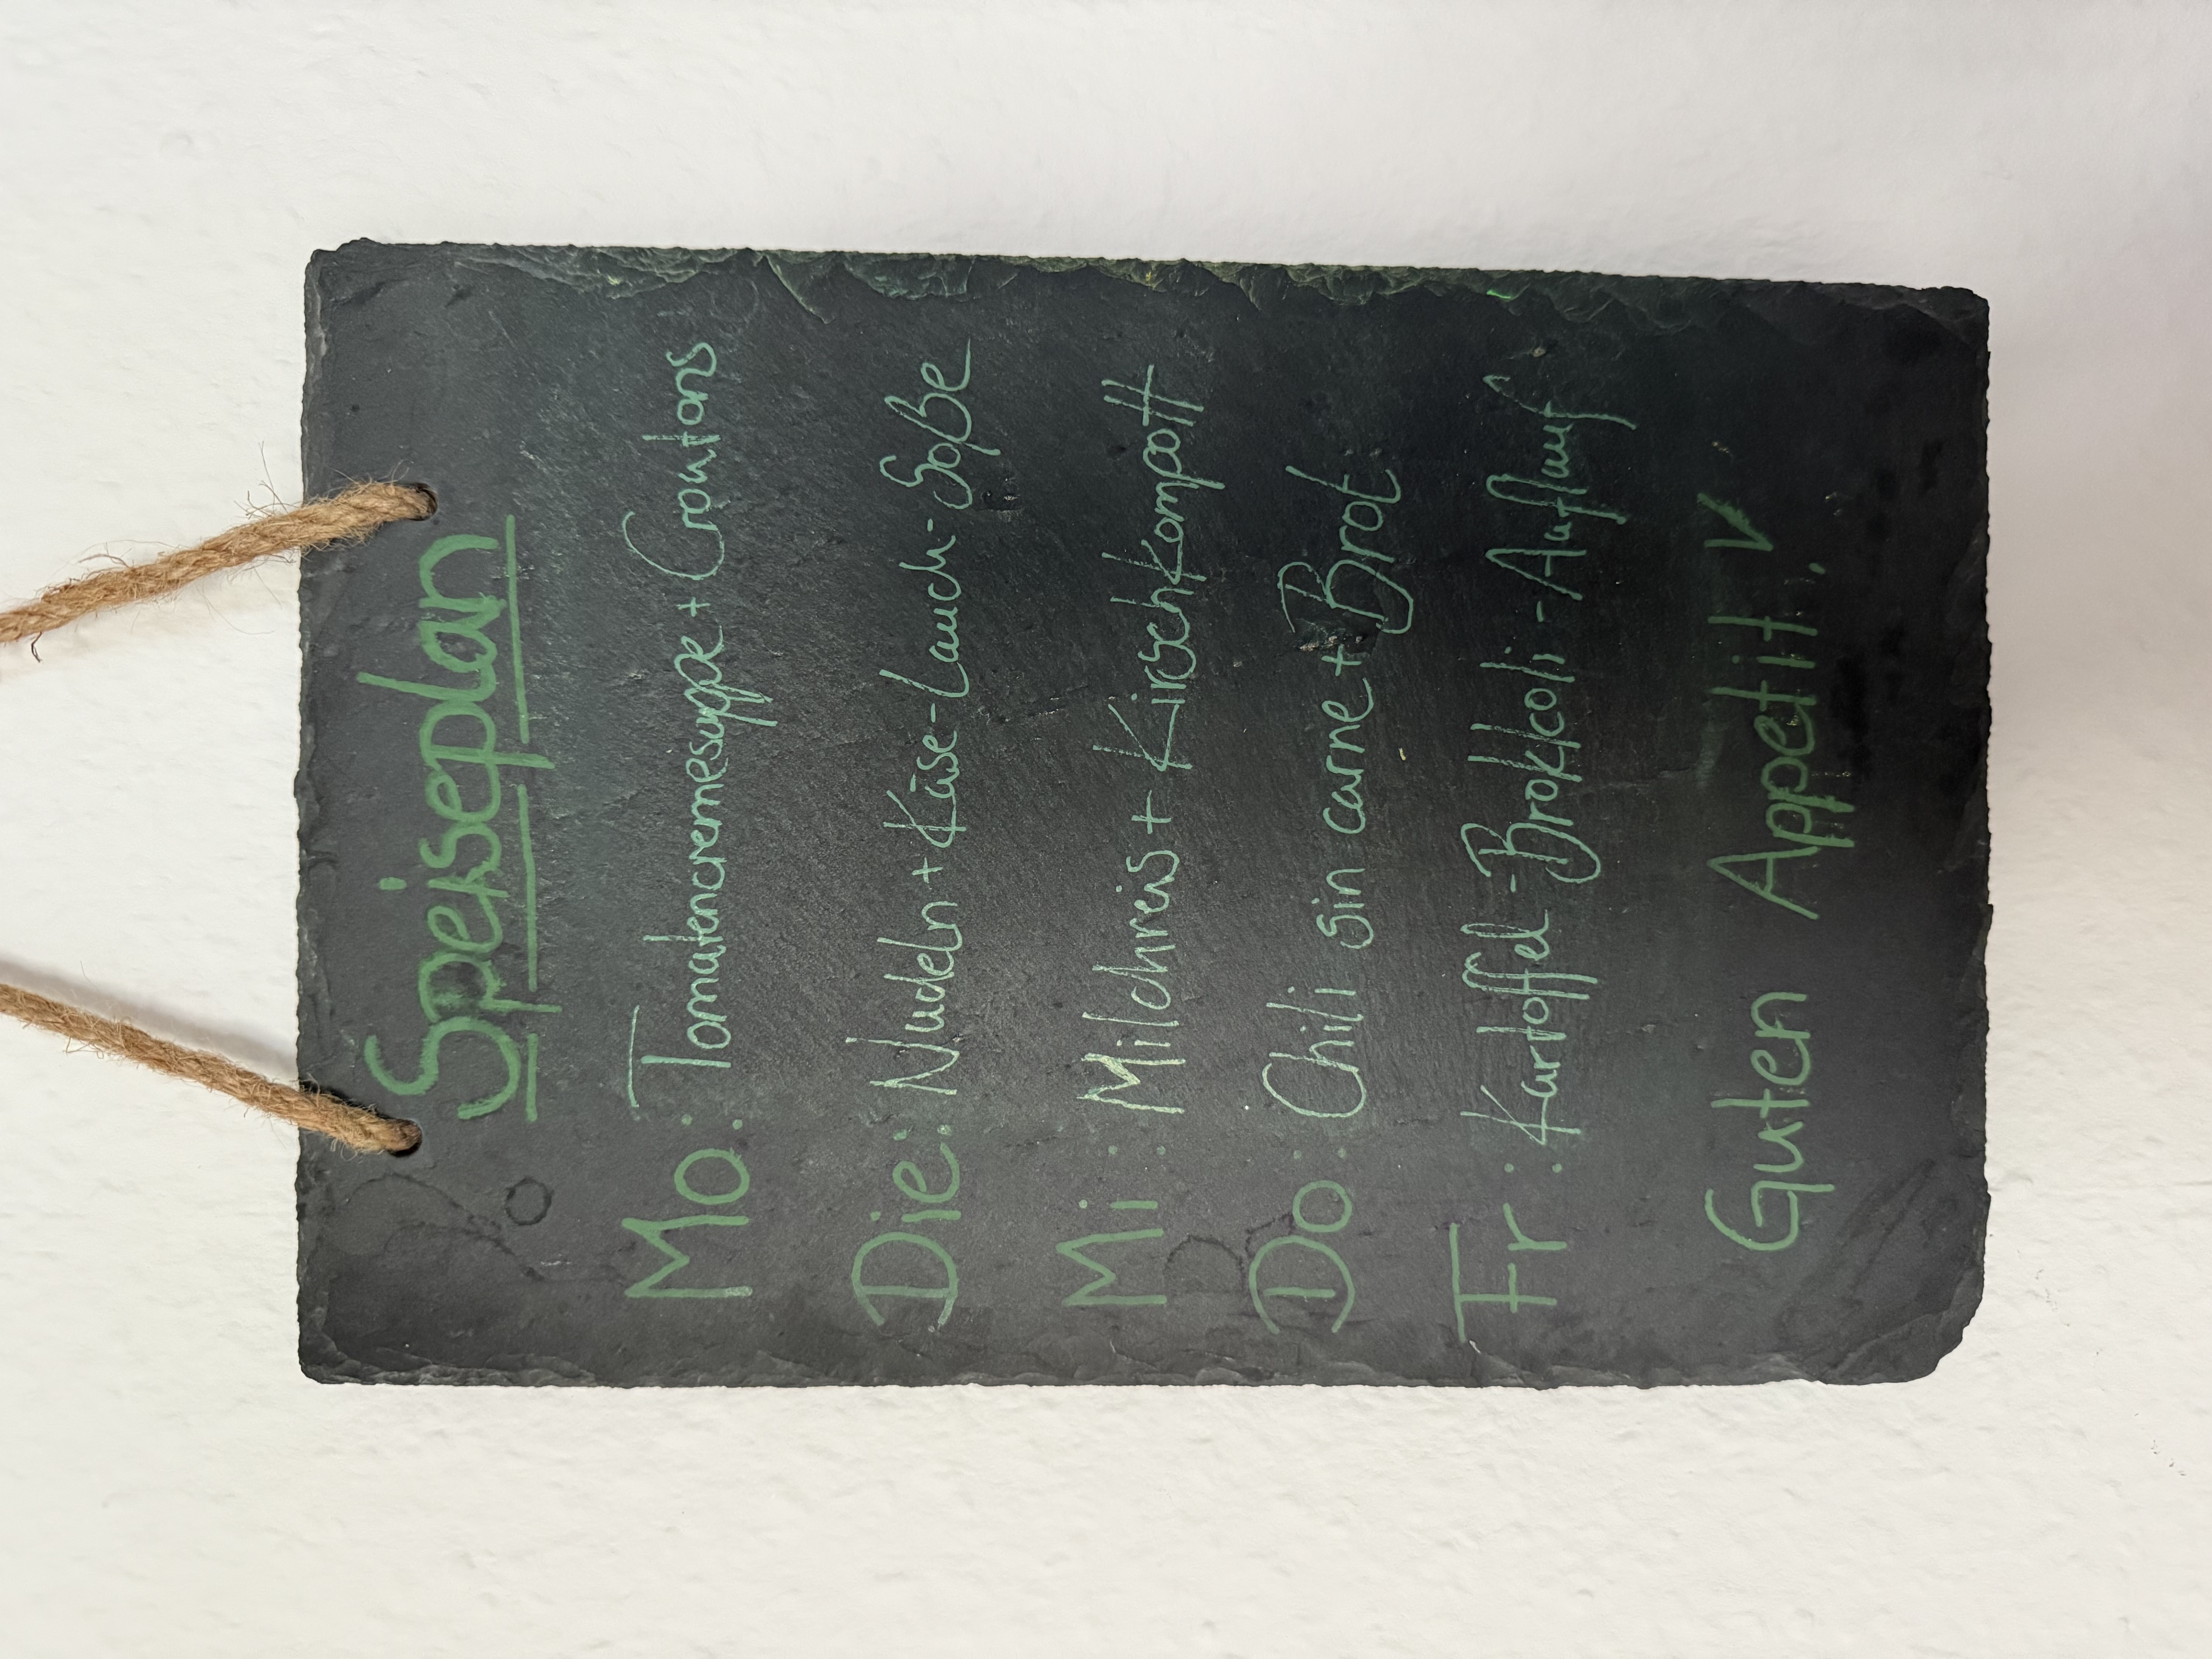 Speiseplan
Mo: Tomatencremesuppe + Croutons
Die: Nudeln + Käse-Lauch-Soße
Mi: Milchreis + Kirschkompott
Do: Chili sin carne + Brot
Fr: Kartoffel-Brokkoli-Auflauf
Guten Appetit!